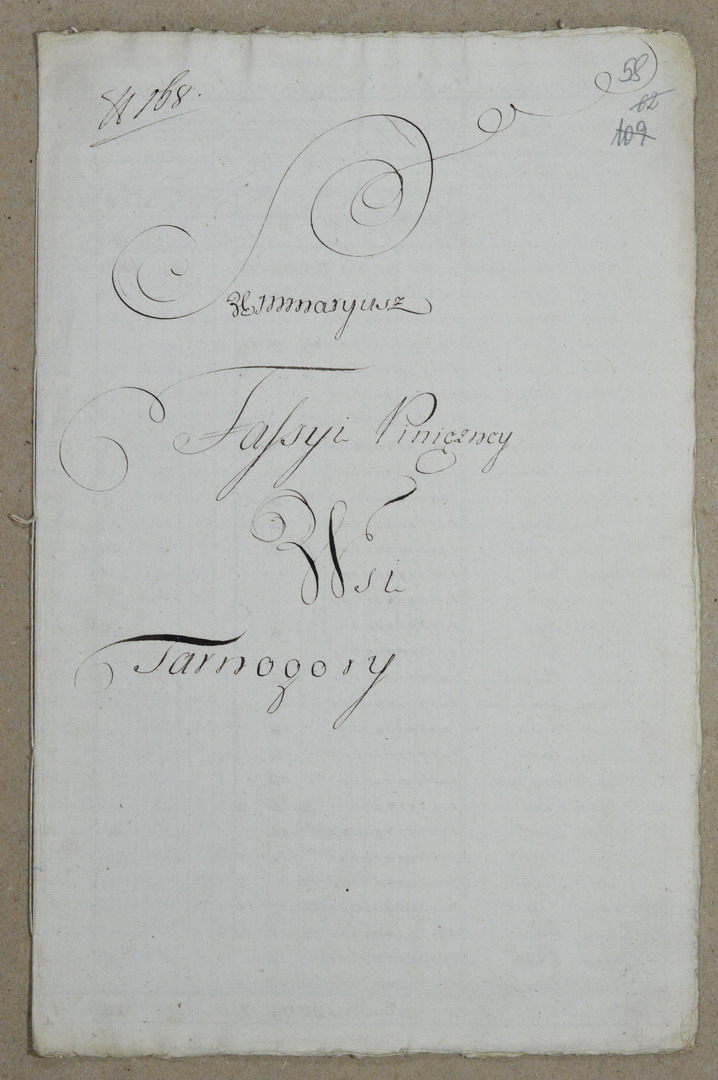 N 168.
58
62
109
Summaryusz
Fassyi Pinięzney
Wsi
Tarnogory